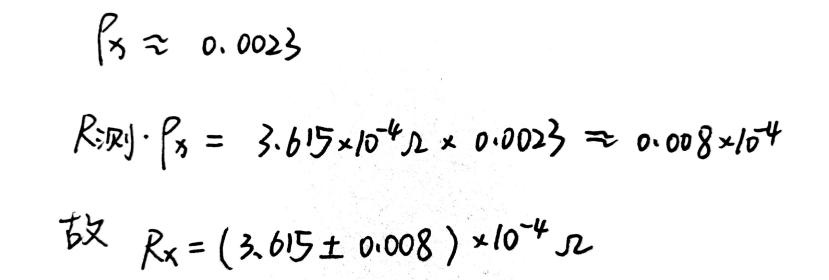 ρx ≈ 0.0023
R测·ρx = 3.615×10⁻⁴Ω × 0.0023 ≈ 0.008×10⁻⁴
故 Rx = (3.615 ± 0.008) ×10⁻⁴ Ω